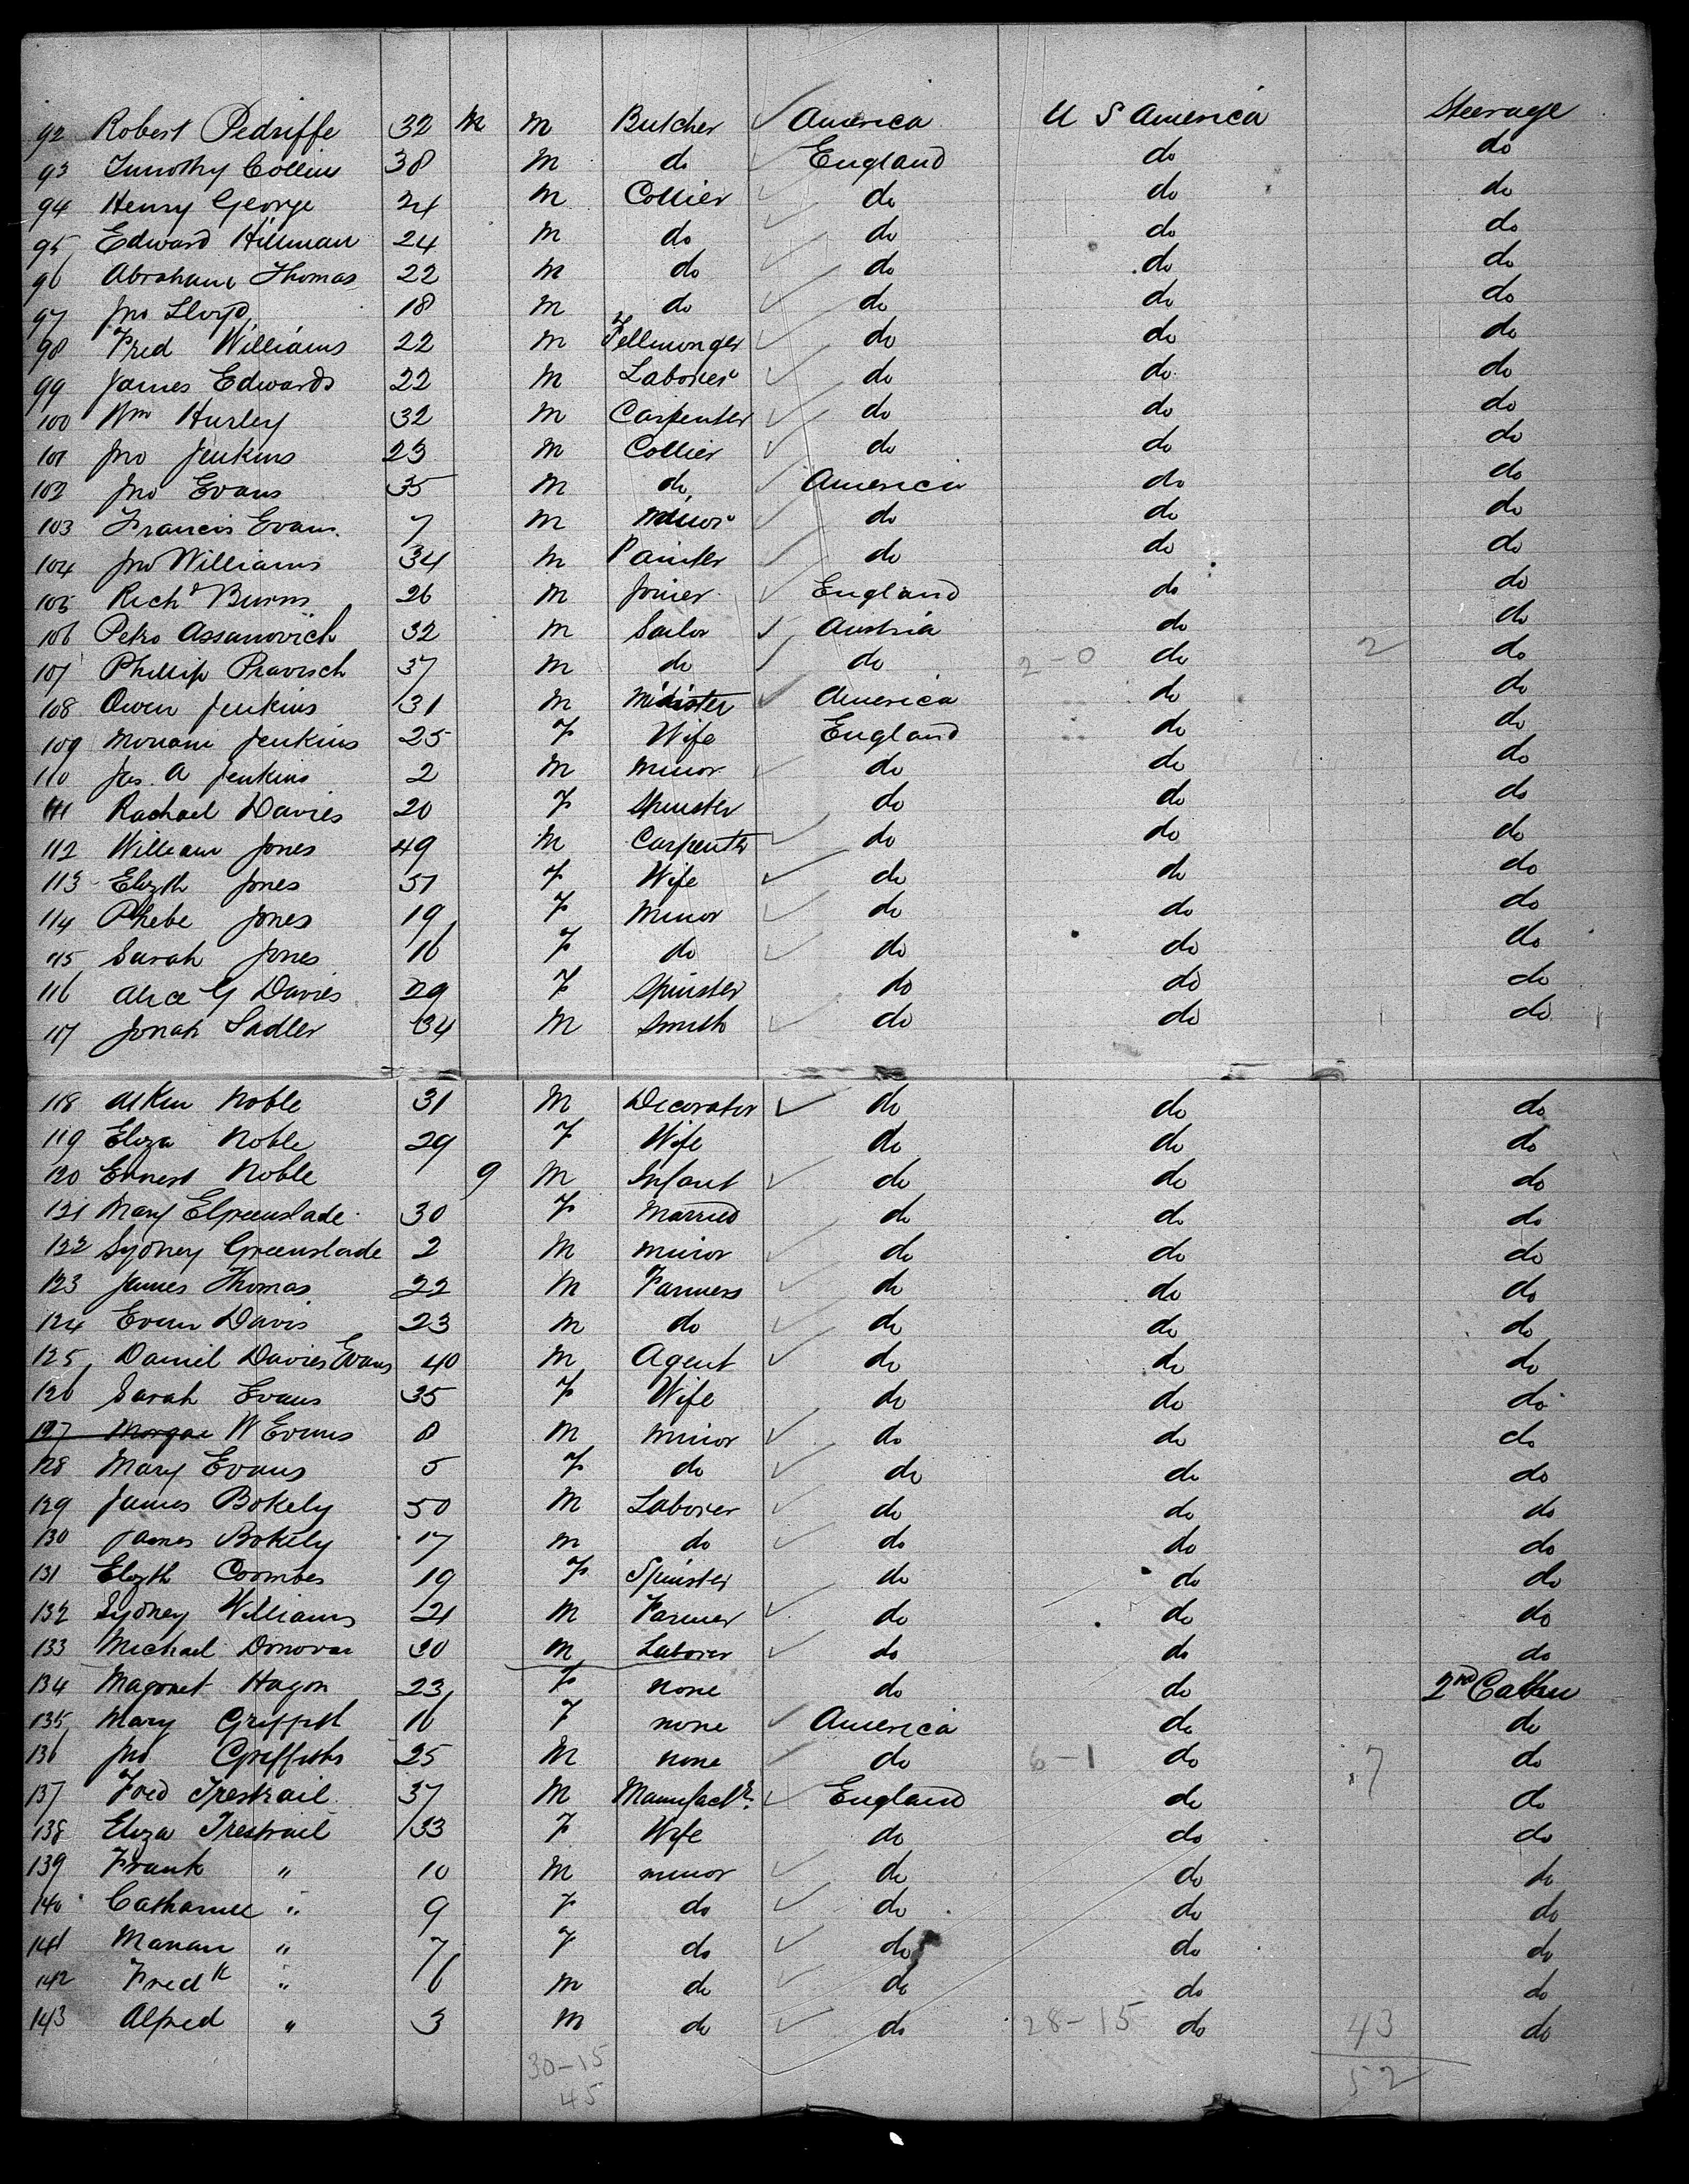 92 Robert Pedriffe 32 m m Butcher America U S America Steerage
93 Timothy Collins 38 m do England do do
94 Henry George 24 m Collier do do do
95 Edward Hillman 24 m do do do do
96 Abraham Thomas 22 m do do do do
97 Jno Lloyd 18 m do do do do
98 Fred Williams 22 m Fellmonger do do do
99 James Edwards 22 m Laborer do do do
100 Wm Hurley 32 m Carpenter do do do
101 Jno Jenkins 23 m Collier do do do
102 Jno Evans 35 m do America do do
103 Francis Evans 7 m minor do do do
104 Jno Williams 34 m Painter do do do
105 Richd Burns 26 m Joiner England do do
106 Petro Assanovich 32 m Sailor Austria do do
107 Phillip Pravisch 37 m do do 2-0 do 2 do
108 Owen Jenkins 31 m Minister America do do
109 Jenkins 25 F Wife England do do
110 Jas. A Jenkins 2 m minor do do do
111 Rachael Davies 20 F Spinster do do do
112 William Jones 49 m Carpenter do do do
113 Elizth Jones 51 F Wife do do do
114 Phebe Jones 19 F Minor do do do
115 Sarah Jones 16 F do do do do
116 Alice G Davies 29 F Spinster do do do
117 Jonah Sadler 34 M Smith do do do
118 Noble 31 M Decorator do do do
119 Eliza Noble 29 F Wife do do do
120 Ernest Noble 9 M Infant do do do
121 Mary E Greenslade 30 F Married do do do
122 Sydney Greenslade 2 M minor do do do
123 James Thomas 22 M Farmers do do do
124 Evan Davis 23 m do do do do
125 Daniel Davies Evans 40 M Agent do do do
126 Sarah Evans 35 F Wife do do do
127 Morgan W Evans 8 M minor do do do
128 Mary Evans 5 F do do do do
129 James Bokely 50 M Laborer do do do
130 James Bokely 17 m do do do do
131 Elizth Coombes 19 F Spinster do do do
132 Sydney Williams 21 M Farmer do do do
133 Michael Donovan 30 M Laborer do do do
134 Hagon 23 F none do do 2nd Cabin
135 Mary Griffith 16 F none America do do
136 Jno Griffiths 25 M none do 6-1 do 7 do
137 Fred Trestrail 37 M Manufactr. England do do
138 Eliza Trestrail 33 F Wife do do do
139 Frank " 10 M minor do do do
140 " 9 F do do do do
141 " 7 F do do do do
142 Fredk " 6 m do do do do
143 Alfred " 3 M do do 28-15 do 43 do
30-15 52
45